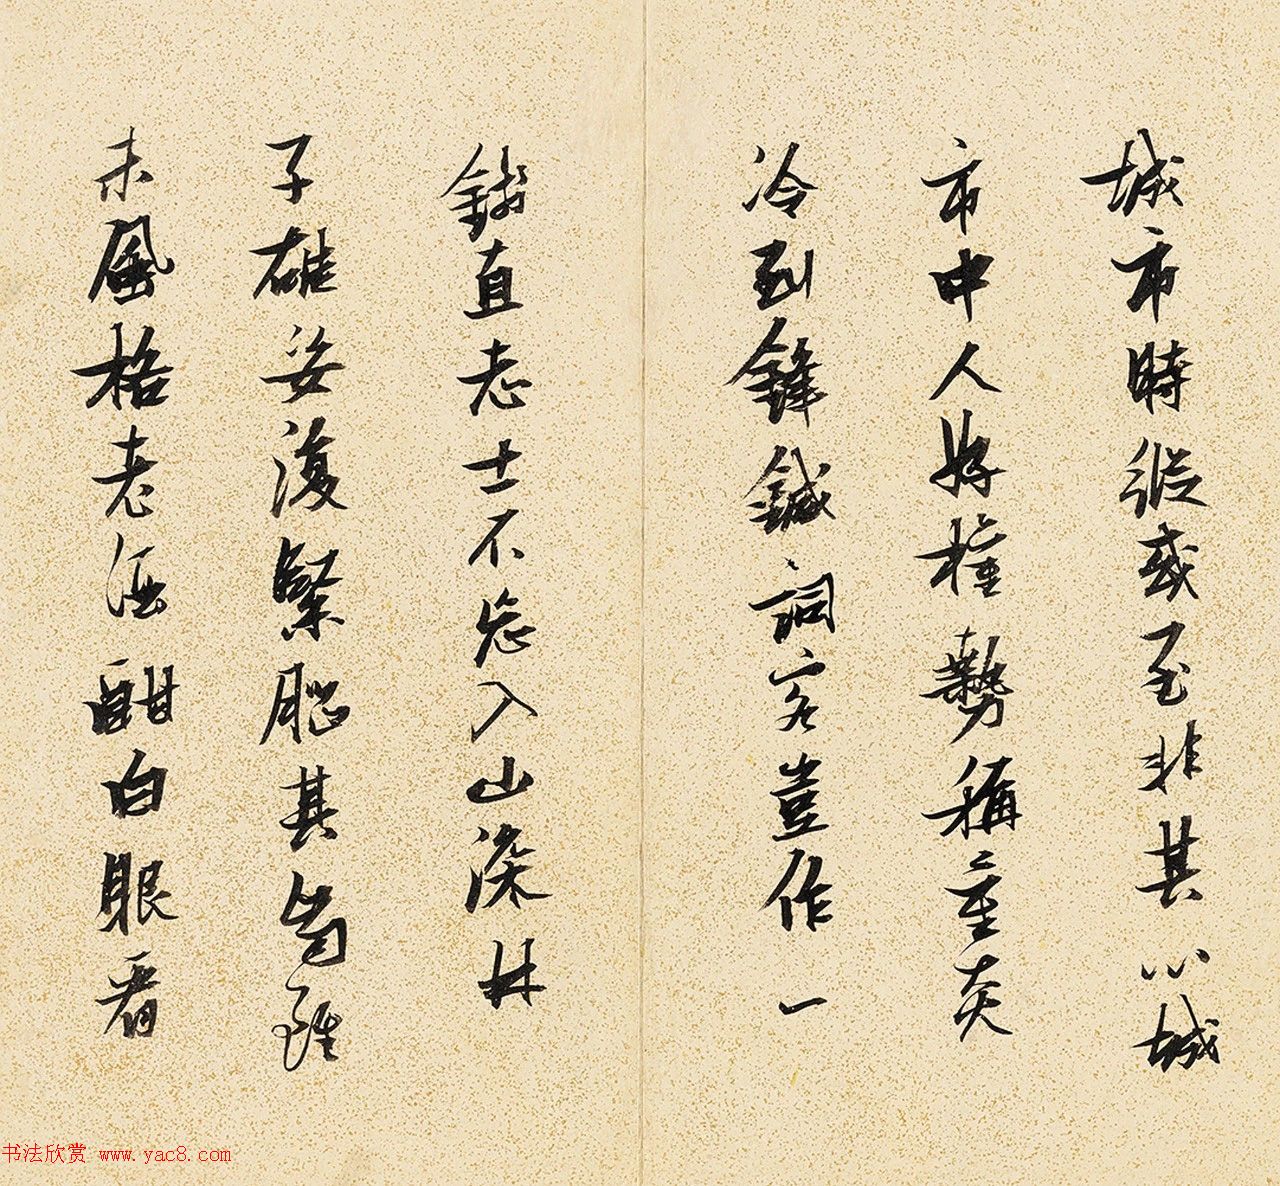 城市時縱或至非其心城
市中人好權勢稱重炎
冷到鋒鍼詞客豈作一
錢直志士不忘入山深林
子雄姿復緊腦其如雖
未風格老酒酣白眼看
书法欣赏 www.yac8.com